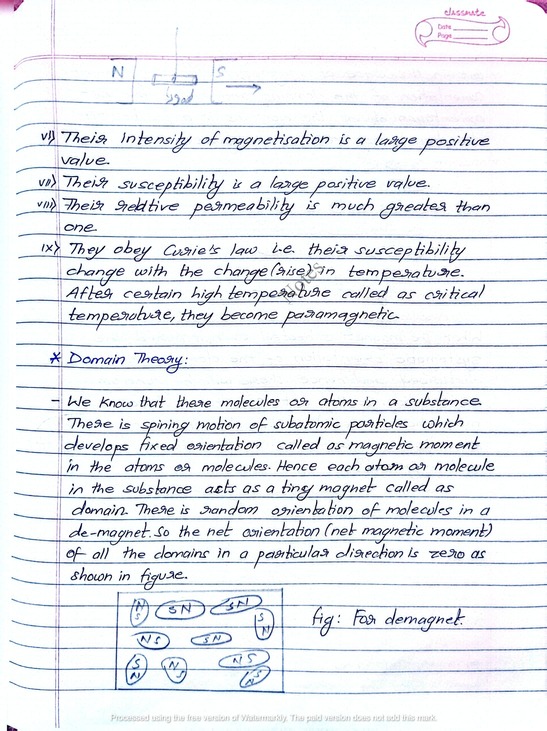 classmate
Date
Page
N S
vi) Their Intensity of magnetisation is a large positive
value.
vii) Their susceptibility is a large positive value.
viii) Their relative permeability is much greater than
one.
ix) They obey Curie's law i.e. their susceptibility
change with the change (rise) in temperature.
After certain high temperature called as critical
temperature, they become paramagnetic.
Notes
* Domain Theory:
- We know that there molecules or atoms in a substance.
There is spining motion of subatomic particles which
develops fixed orientation called as magnetic moment
in the atoms or molecules. Hence each atom or molecule
in the substance acts as a tiny magnet called as
domain. There is random orientation of molecules in a
de-magnet. So the net orientation (net magnetic moment)
of all the domains in a particular direction is zero as
shown in figure.
N S SN SN S N
NS SN
S N N S NS NS
fig: For demagnet.
Processed using the free version of Watermarkly. The paid version does not add this mark.